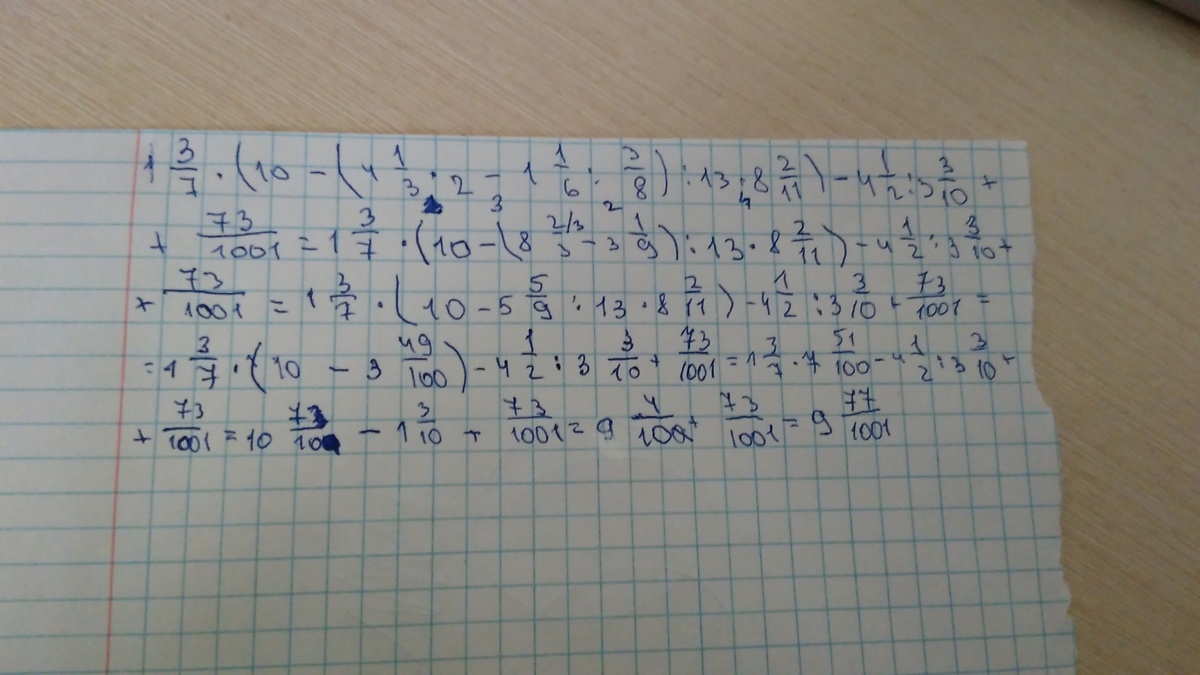 1 3/7 · (10 − (4 1/3 · 2 − 1 1/6 : 3/8) : 13 · 8 2/11) − 4 1/2 : 3 3/10 +
+ 73/1001 = 1 3/7 · (10 − (8 2/3 − 3 1/9) : 13 · 8 2/11) − 4 1/2 : 3 3/10 +
+ 73/1001 = 1 3/7 · (10 − 5 5/9 : 13 · 8 2/11) − 4 1/2 : 3 3/10 + 73/1001 =
= 1 3/7 · (10 − 3 49/100) − 4 1/2 : 3 3/10 + 73/1001 = 1 3/7 · 7 51/100 − 4 1/2 : 3 3/10 +
+ 73/1001 = 10 73/100 − 1 3/10 + 73/1001 = 9 4/100 + 73/1001 = 9 77/1001